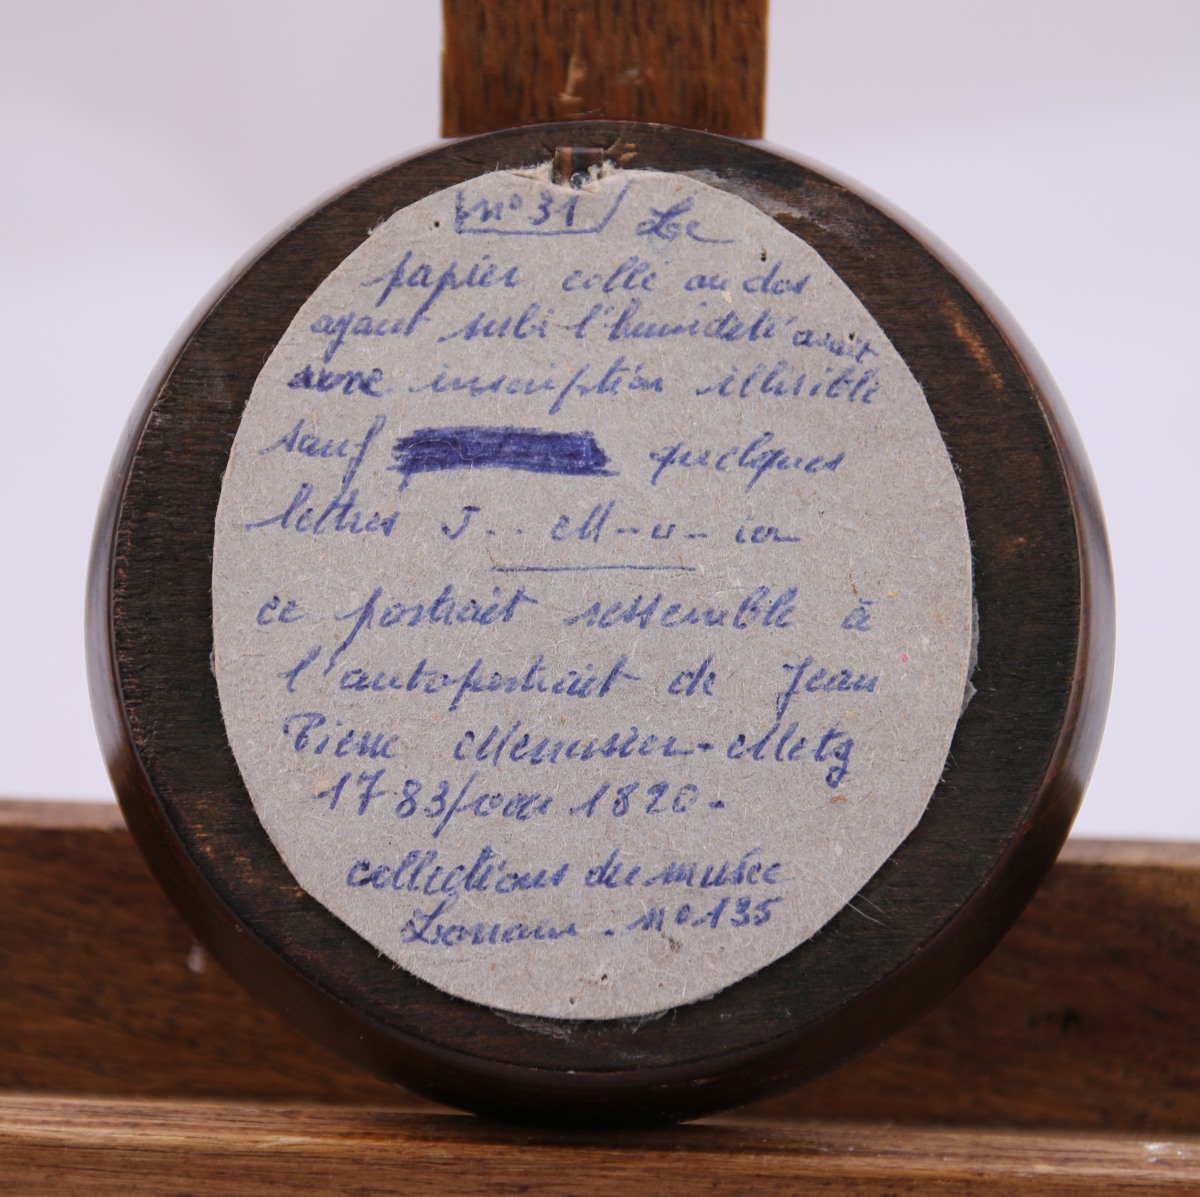 n° 31 Le
papier collé au dos
ayant subi l'humidité avait
une inscription illisible
sauf quelques
lettres J.. M-u- ier
ce portrait ressemble à
l'autoportrait de Jean
Pierre Meusnier - Metz
1783/ 1820 -
collections du musée
Lorrain - n° 135